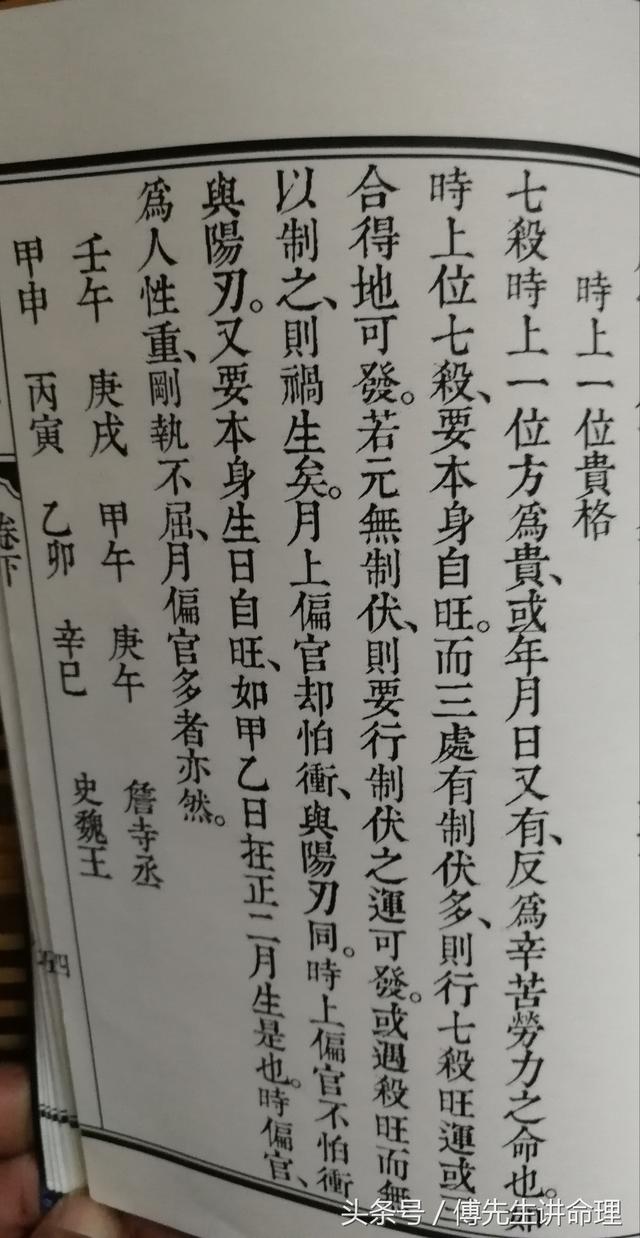 時上一位貴格
七殺時上一位方爲貴、或年月日又有、反爲辛苦勞力之命也。如
時上位七殺、要本身自旺。而三處有制伏多、則行七殺旺運或三
合得地可發。若元無制伏、則要行制伏之運可發。或遇殺旺而無
以制之、則禍生矣。月上偏官却怕衝、與陽刃同。時上偏官不怕衝
與陽刃。又要本身生日自旺、如甲乙日在正二月生是也。時偏官、
爲人性重、剛執不屈、月偏官多者亦然。
壬午 庚戌 甲午 庚午 詹寺丞
甲申 丙寅 乙卯 辛巳 史魏王
卷下
四
头条号 / 傅先生讲命理